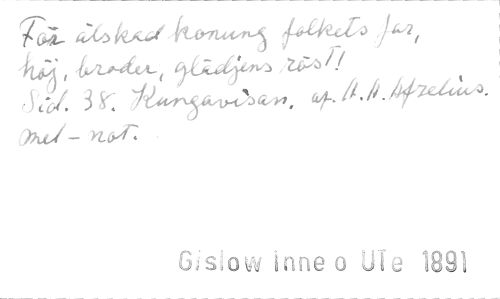 För älskad konung folkets far,
höj, broder, glädjens röst!
Sid. 38. Kungavisan. af. A.A. Afzelius.
mel-not.
Gislow Inne o UTe 1891